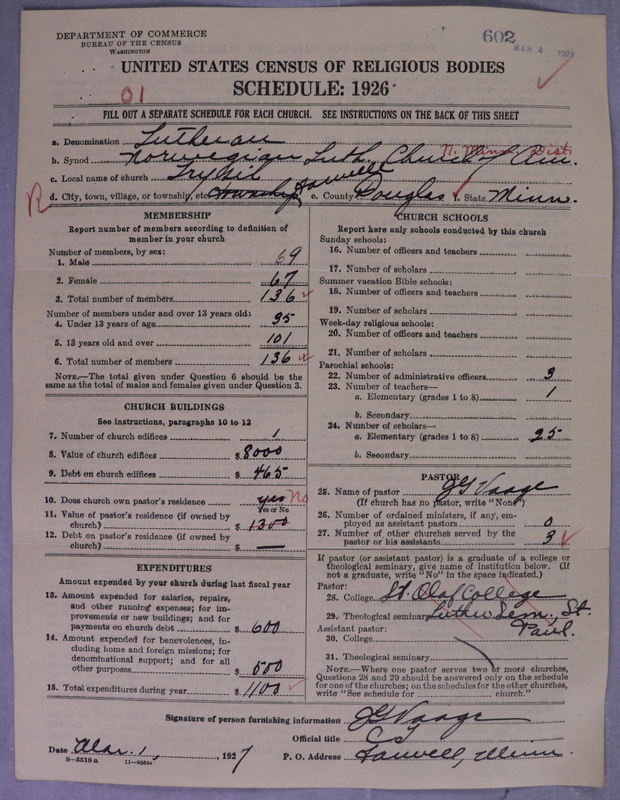 DEPARTMENT OF COMMERCE
BUREAU OF THE CENSUS
WASHINGTON
602
MAR 4 1927
UNITED STATES CENSUS OF RELIGIOUS BODIES
SCHEDULE: 1926
01
FILL OUT A SEPARATE SCHEDULE FOR EACH CHURCH. SEE INSTRUCTIONS ON THE BACK OF THIS SHEET
a. Denomination Lutheran
N. Minn. Dist.
b. Synod Norwegian Luth. Church of Am.
c. Local name of church Trysil
R d. City, town, village, or township, etc. township Farwell e. County Douglas f. State Minn.
MEMBERSHIP
Report number of members according to definition of member in your church
Number of members, by sex:
1. Male 69
2. Female 67
3. Total number of members 136
Number of members under and over 13 years old:
4. Under 13 years of age 35
5. 13 years old and over 101
6. Total number of members 136
NOTE.—The total given under Question 6 should be the same as the total of males and females given under Question 3.
CHURCH BUILDINGS
See instructions, paragraphs 10 to 12
7. Number of church edifices 1
8. Value of church edifices $8000
9. Debt on church edifices $465
10. Does church own pastor's residence yes No
Yes or No
11. Value of pastor's residence (if owned by church) $1300
12. Debt on pastor's residence (if owned by church) $ —
EXPENDITURES
Amount expended by your church during last fiscal year
13. Amount expended for salaries, repairs, and other running expenses; for improvements or new buildings; and for payments on church debt $600
14. Amount expended for benevolences, including home and foreign missions; for denominational support; and for all other purposes $500
15. Total expenditures during year $1100
CHURCH SCHOOLS
Report here only schools conducted by this church
Sunday schools:
16. Number of officers and teachers
17. Number of scholars
Summer vacation Bible schools:
18. Number of officers and teachers
19. Number of scholars
Week-day religious schools:
20. Number of officers and teachers
21. Number of scholars
Parochial schools:
22. Number of administrative officers 3
23. Number of teachers—
a. Elementary (grades 1 to 8) 1
b. Secondary
24. Number of scholars—
a. Elementary (grades 1 to 8) 25
b. Secondary
PASTOR
25. Name of pastor JG Vaage
(If church has no pastor, write "None")
26. Number of ordained ministers, if any, employed as assistant pastors 0
27. Number of other churches served by the pastor or his assistants 3
If pastor (or assistant pastor) is a graduate of a college or theological seminary, give name of institution below. (If not a graduate, write "No" in the space indicated.)
Pastor:
28. College St. Olaf College
29. Theological seminary Luther Sem., St. Paul.
Assistant pastor:
30. College
31. Theological seminary
NOTE.—Where one pastor serves two or more churches, Questions 28 and 29 should be answered only on the schedule for one of the churches; on the schedules for the other churches, write "See schedule for church."
Signature of person furnishing information JG Vaage
Official title
Date Mar. 1, 1927 P. O. Address Farwell, Minn.
8—5518 a 11—9054a